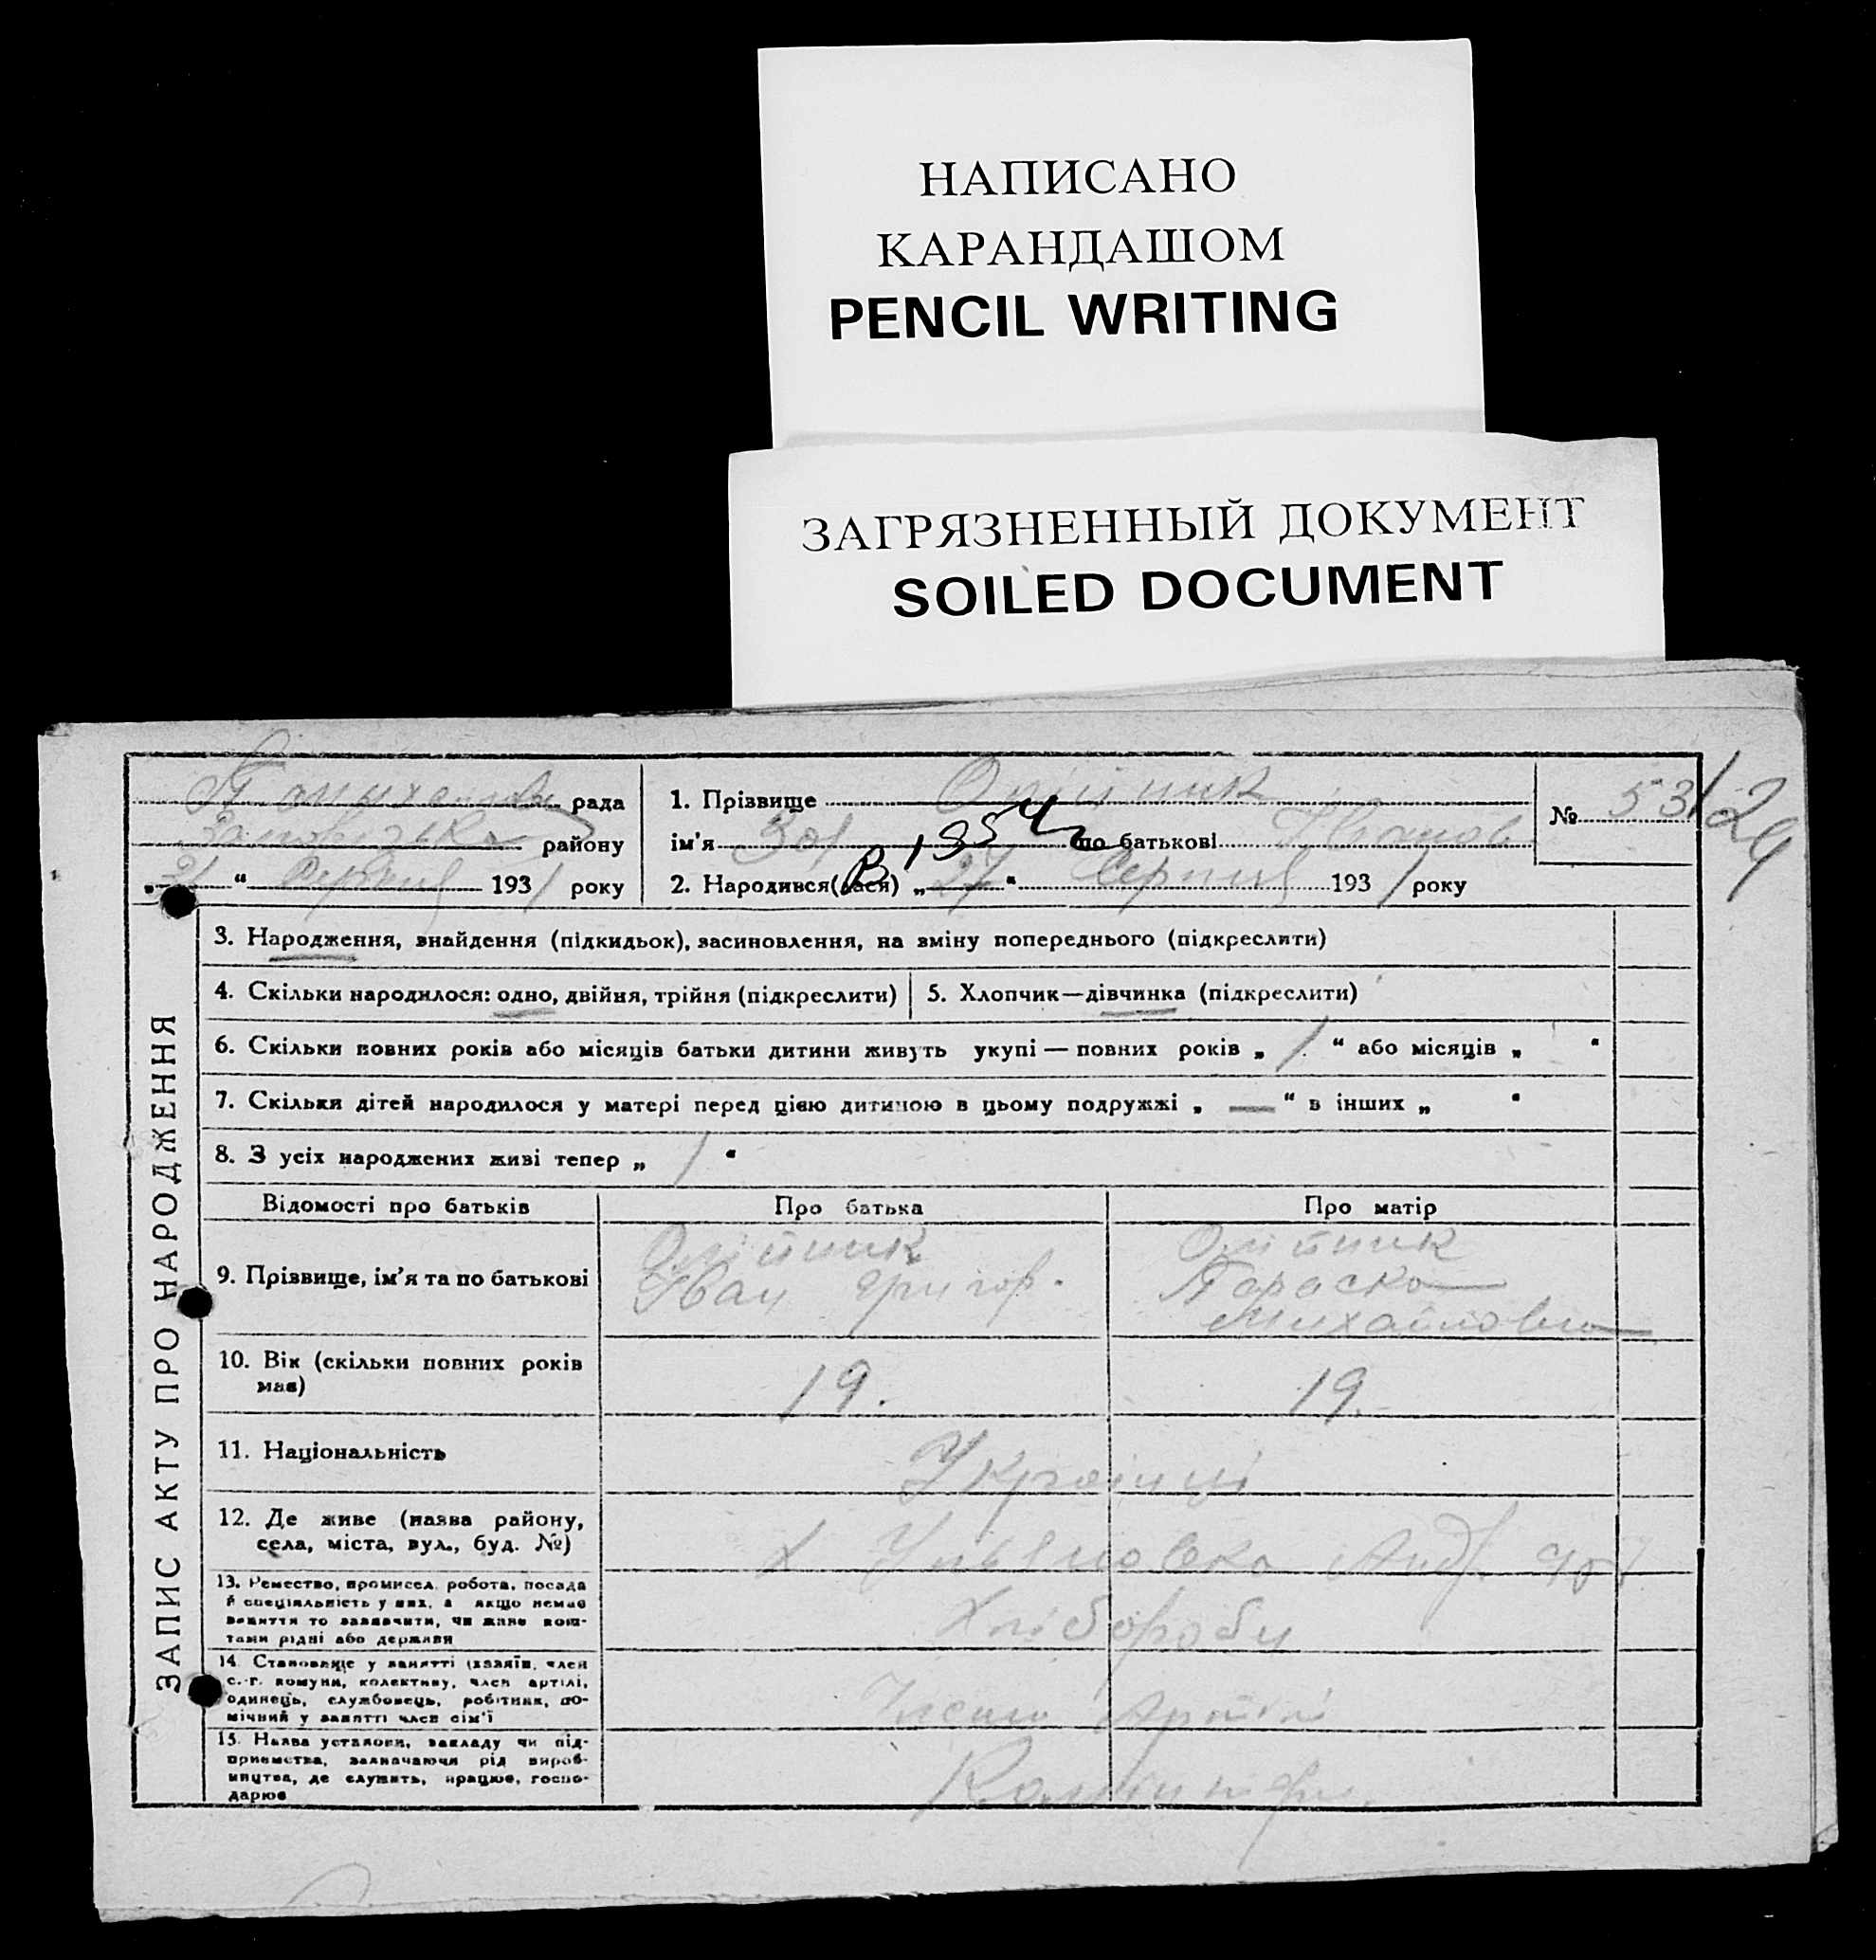 НАПИСАНО
КАРАНДАШОМ
PENCIL WRITING
ЗАГРЯЗНЕННЫЙ ДОКУМЕНТ
SOILED DOCUMENT
рада
району
193 1 року
1. Прізвище Олійник
ім'я по батькові Іванов
2. Народився(лася) „27“ Серпня 193 1 року
№ 53
29
ЗАПИС АКТУ ПРО НАРОДЖЕННЯ
3. Народження, знайдення (підкидьок), засиновлення, на зміну попереднього (підкреслити)
4. Скільки народилося: одно, двійня, трійня (підкреслити)
5. Хлопчик—дівчинка (підкреслити)
6. Скільки повних років або місяців батьки дитини живуть укупі — повних років „ 1 “ або місяців „ “
7. Скільки дітей народилося у матері перед цією дитиною в цьому подружжі „ — “ в інших „ “
8. З усіх народжених живі тепер „ 1 “
Відомості про батьків Про батька Про матір
9. Прізвище, ім'я та по батькові
Олійник
Іван Григор.
Олійник
Параска
Михайловна
10. Вік (скільки повних років
має)
19. 19.
11. Національність Українці
12. Де живе (назва району,
села, міста, вул., буд. №)
13. Ремество, промисел, робота, посада
й спеціяльність у них, а якщо немає
заняття то зазначити, чи живе кош-
тами рідні або держави
Хлібороби
14. Становище у занятті (хазяїн, член
с.-г. комуни, колективу, член артілі,
одинець, службовець, робітник, по-
мічний у занятті член сім'ї
Члени Артілі
15. Назва установи, закладу чи під-
приємства, зазначаючи рід вироб-
ництва, де служить, працює, госпо-
дарює